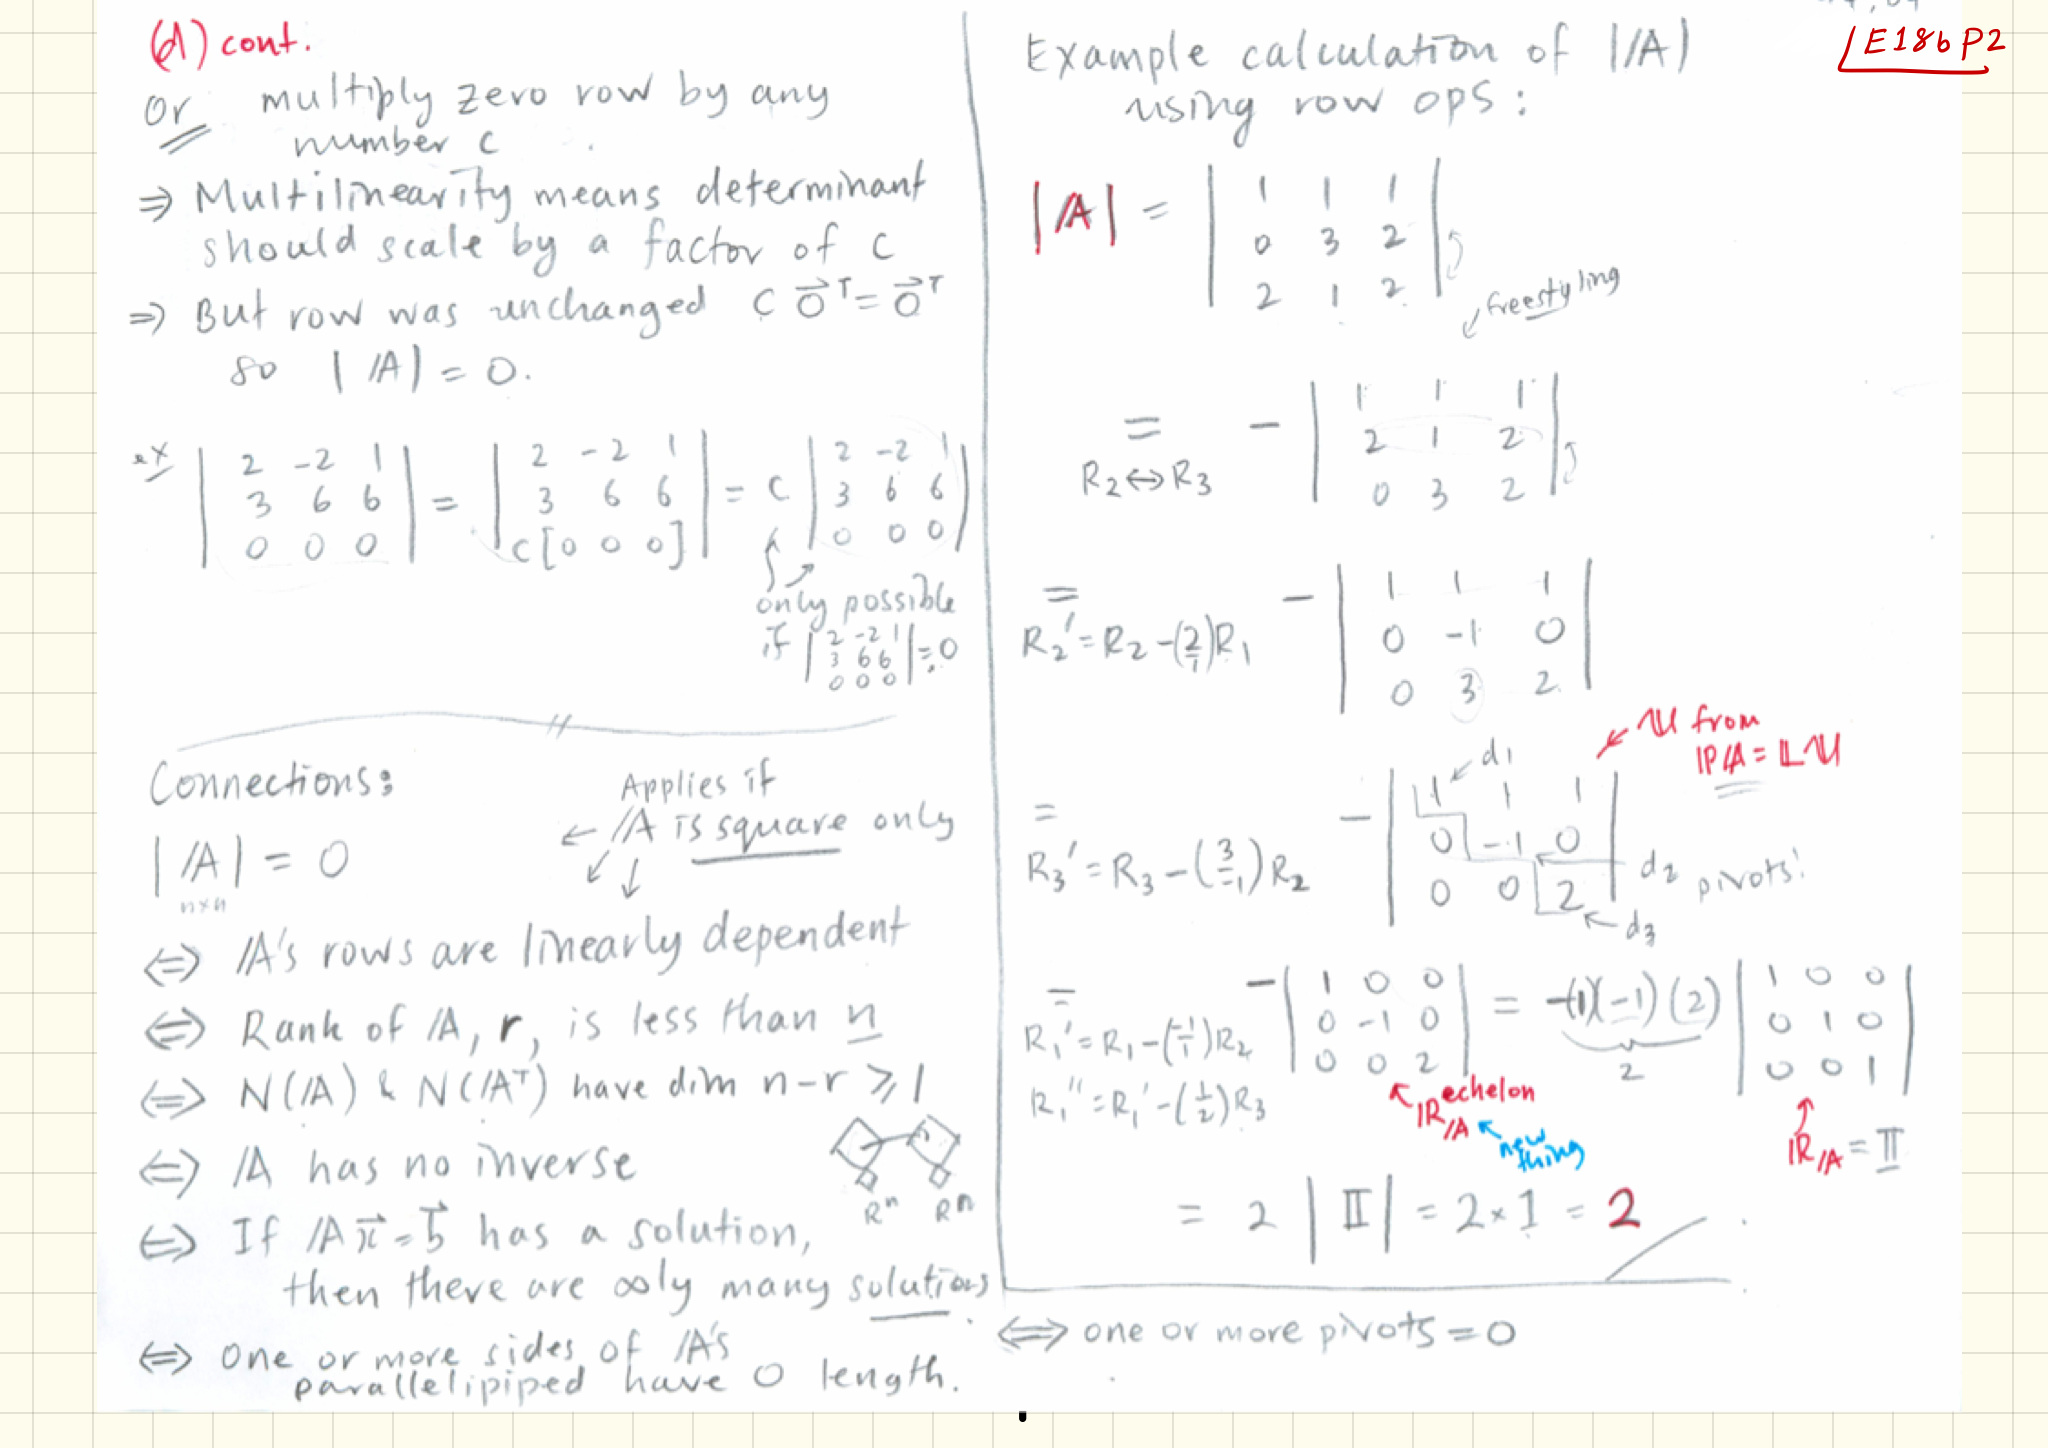 (d) cont.
or multiply zero row by any
number c
⇒ Multilinearity means determinant
should scale by a factor of c
⇒ But row was unchanged c 0⃗ᵀ = 0⃗ᵀ
so |A| = 0.
ex | 2 -2 1 | = | 2 -2 1 | = c | 2 -2 1 |
| 3 6 6 | | 3 6 6 | | 3 6 6 |
| 0 0 0 | | c[0 0 0] | | 0 0 0 |
only possible
if | 2 -2 1 | = 0
| 3 6 6 |
| 0 0 0 |
Connections:
Applies if
← A is square only
|A| = 0
n×n
⇔ A's rows are linearly dependent
⇔ Rank of A, r, is less than n
⇔ N(A) & N(Aᵀ) have dim n-r ≥ 1
⇔ A has no inverse
Rⁿ Rⁿ
⇔ If A x⃗ = b⃗ has a solution,
then there are ∞ly many solutions.
⇔ one or more sides of A's
parallelipiped have 0 length.
E18b P2
Example calculation of |A|
using row ops:
|A| = | 1 1 1 |
| 0 3 2 |
| 2 1 2 |
freestyling
= - | 1 1 1 |
R2↔R3 | 2 1 2 |
| 0 3 2 |
= - | 1 1 1 |
R2' = R2 - (2/1)R1 | 0 -1 0 |
| 0 3 2 |
U from
PA = LU
d1
= - | 1 1 1 |
| 0 -1 0 |
R3' = R3 - (3/-1)R2 | 0 0 2 | d2 pivots!
d3
= - | 1 0 0 | = -(1)(-1)(2) | 1 0 0 |
R1' = R1 - (-1/1)R2 | 0 -1 0 | 2 | 0 1 0 |
R1'' = R1' - (1/2)R3 | 0 0 2 | | 0 0 1 |
R_A echelon
new
thing
R_A = I
= 2 |I| = 2 × 1 = 2
⇔ one or more pivots = 0